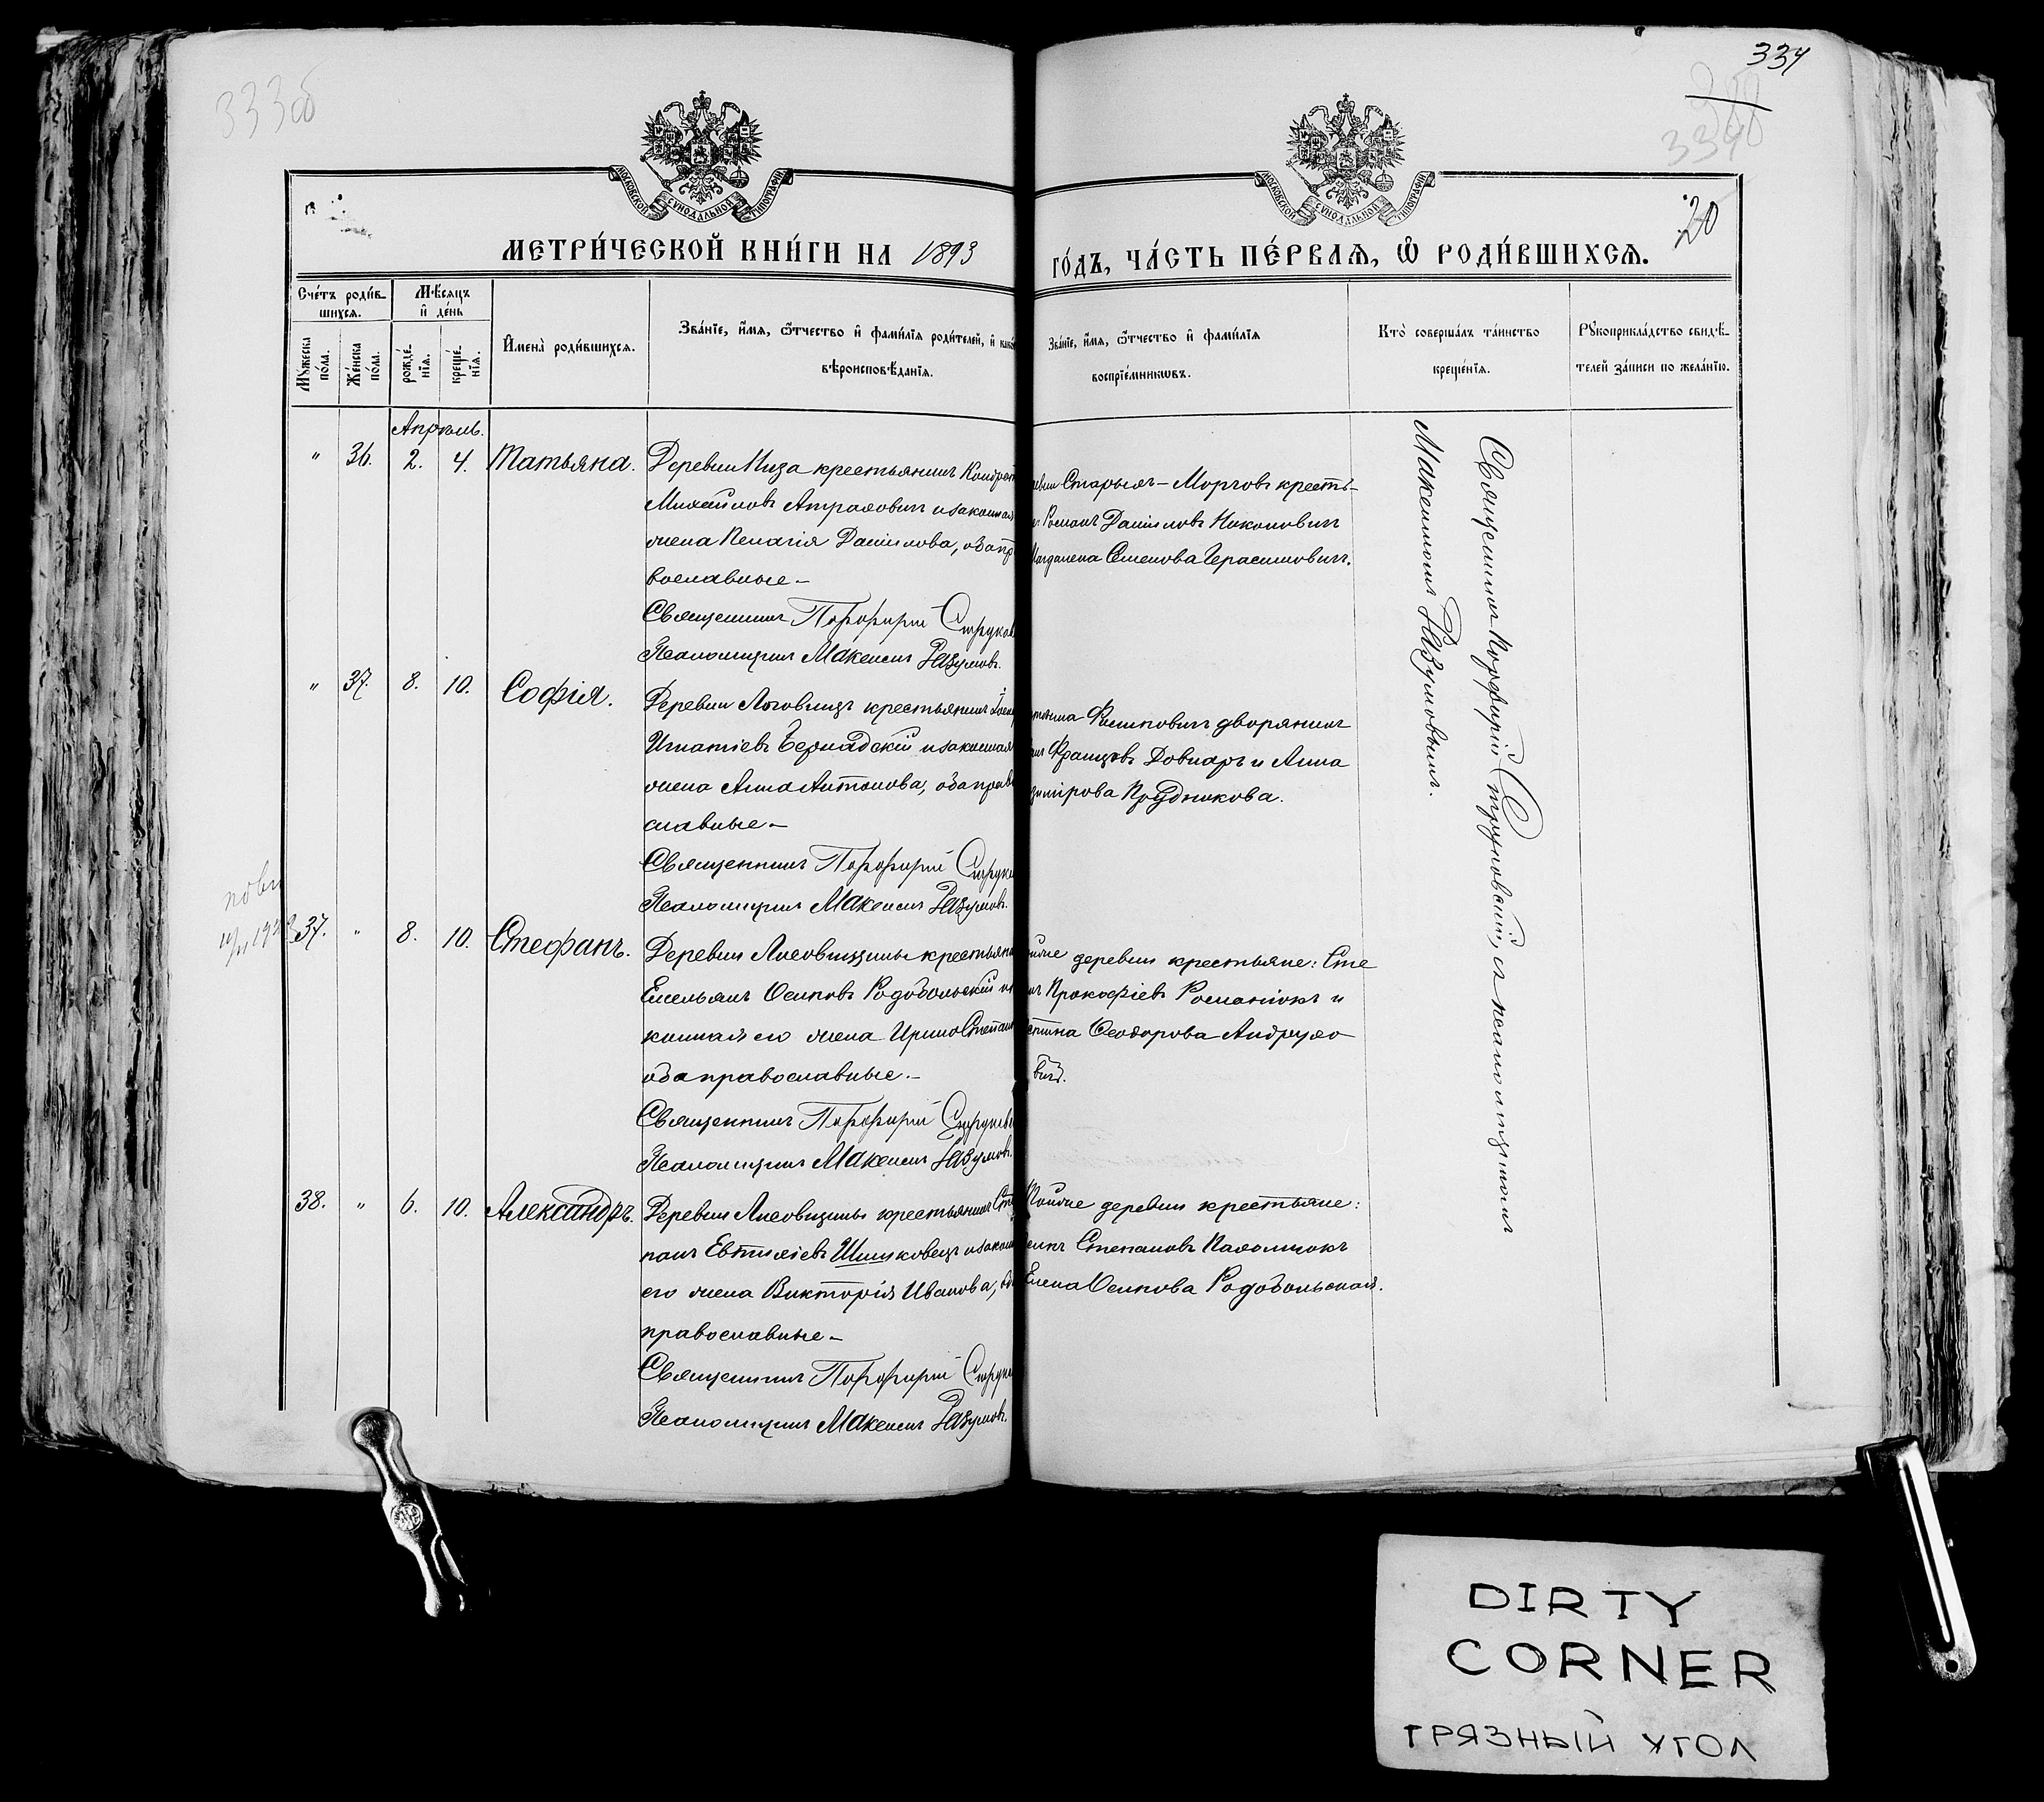 333об
334
20
МОСКОВСКОЙ СѴНОДАЛЬНОЙ ТИПОГРАФІИ
МОСКОВСКОЙ СѴНОДАЛЬНОЙ ТИПОГРАФІИ
МЕТРИ́ЧЕСКОЙ КНИ́ГИ НА 1893
ГО́ДЪ, ЧА́СТЬ ПЕ́РВАѦ, Ѡ҆ РОДИ́ВШИХСѦ.
Сче́тъ роди́в-
шихсѧ.
Мꙋ́жеска
по́ла.
Же́нска
по́ла.
Мѣ́сѧцъ
и҆ де́нь
рожде́-
нїѧ.
креще́-
нїѧ.
И҆мена̀ роди́вшихсѧ.
Зва́нїе, и҆́мѧ, ѻ҆́тчество и҆ фами́лїѧ роди́телей, и҆ како́
вѣроисповѣ́данїѧ.
Зва́нїе, и҆́мѧ, ѻ҆́тчество и҆ фами́лїѧ
воспрїе́мникѡвъ.
Кто̀ соверша́лъ та́инство
креще́нїѧ.
Рꙋкоприкла́дство свидѣ́-
телей за́писи по жела́нїю.
Апрѣль.
" 36. 2. 4. Татьяна.
Деревни Низа крестьянинъ Кондрат
Михайловъ Атрахович и законная
жена Пелагія Данилова, оба пра
вославные –
Священник Порфирій Струков
Псаломщик Максим Разумов.
Старыхъ – Морговъ кресть-
Роман Даниловъ Никонович
Магдалена Семенова Герасимович.
" 37. 8. 10. Софія.
Деревни Логовищъ крестьянинъ
Игнатіевъ Бернадскій и законная
жена Анна Антонова, оба право
славные –
Священник Порфирій Струков
Псаломщик Максим Разумов.
Филипович дворянин
Францовъ Довнаръ и Анна
димірова Прудникова.
37. " 8. 10. Стефанъ.
Деревни Лисовщины крестьянин
Емельян Осиповъ Родобольскій и за
конная его жена Ирина Степан
оба православные. –
Священник Порфирій Струков
Псаломщик Максим Разумов.
деревни крестьяне: Сте
Прокофіевъ Романюкъ и
стина Ѳеодорова Андрухо
вичъ.
38. " 6. 10. Александръ.
Деревни Лисовщины крестьянин Сте
пан Евтихіевъ Шишковецъ и законн
его жена Викторія Иванова, оба
православные –
Священник Порфирій Струков
Псаломщик Максим Разумов.
Тойже деревни крестьяне:
Степановъ Паламокъ
Елена Осипова Родобольская.
Священник Порфирій Струковскій, с псаломщиком
Максимом Разумовым.
DIRTY
CORNER
ГРЯЗНЫЙ УГОЛ